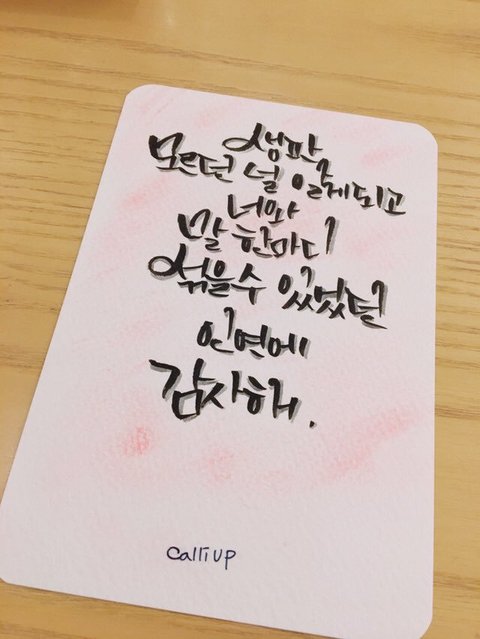 생판
모르던 널 알게되고
너와
말 한마디
섞을수 있었던
인연에
감사해.
calliup